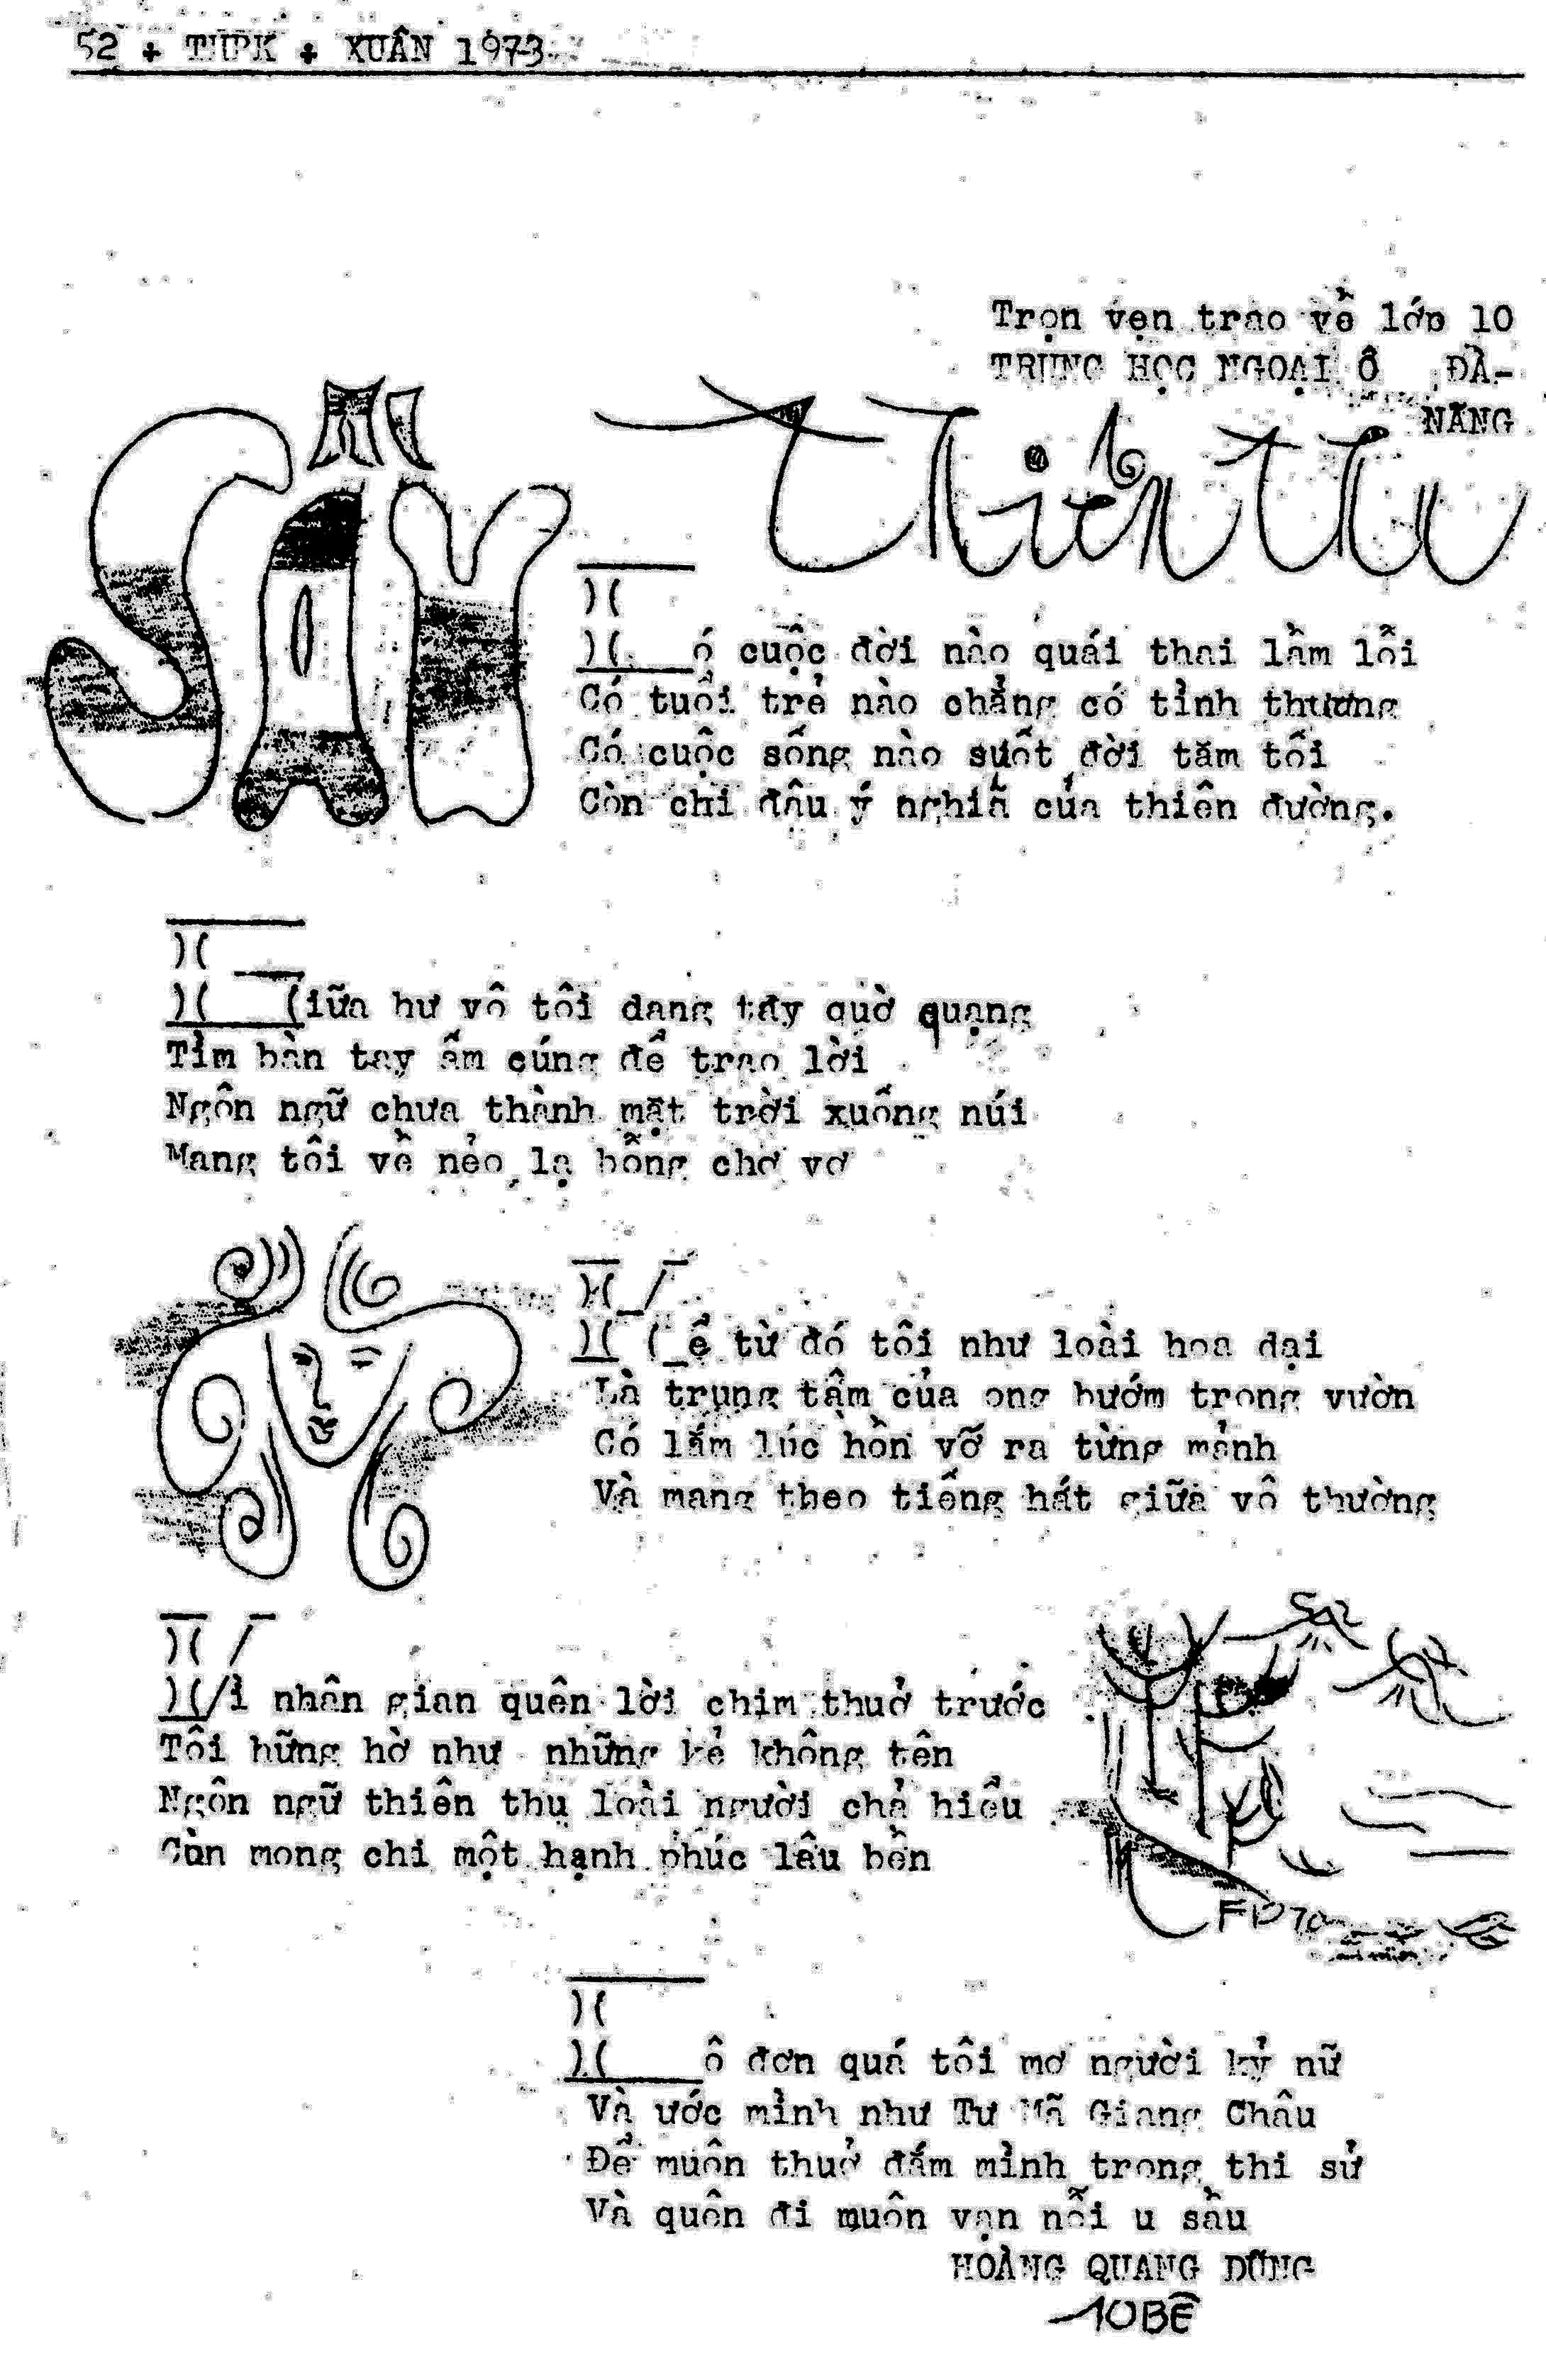 52 + THPK + XUÂN 1973
Trọn vẹn trao về lớp 10
TRUNG HỌC NGOẠI Ô ĐÀ-
NẴNG
SAY
thiên thu
Có cuộc đời nào quái thai lầm lỗi
Có tuổi trẻ nào chẳng có tình thương
Có cuộc sống nào suốt đời tăm tối
Còn chi đâu ý nghiã của thiên đường.
Giữa hư vô tôi dang tay quờ quạng
Tìm bàn tay ấm cúng để trao lời
Ngôn ngữ chưa thành mặt trời xuống núi
Mang tôi về nẻo lạ bỗng chơ vơ
Kể từ đó tôi như loài hoa dại
Là trung tâm của ong bướm trong vườn
Có lắm lúc hồn vỡ ra từng mảnh
Và mang theo tiếng hát giữa vô thường
Vì nhân gian quên lời chim thuở trước
Tôi hững hờ như những kẻ không tên
Ngôn ngữ thiên thu loài người chả hiểu
Còn mong chi một hạnh phúc lâu bền
FD70
Cô đơn quá tôi mơ người kỷ nữ
Và ước mình như Tư Mã Giang Châu
Để muôn thuở đắm mình trong thi sử
Và quên đi muôn vạn nỗi u sầu
HOÀNG QUANG DŨNG
10BÊ